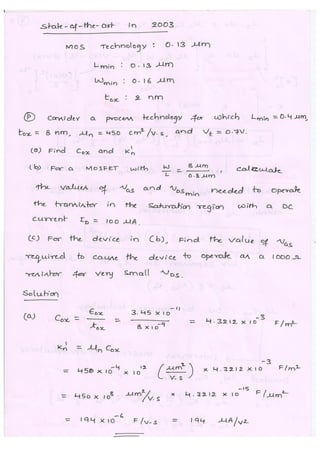 State-of-the-art in 2003
MOS Technology : 0.13 μm
Lmin : 0.13 μm
Wmin : 0.16 μm
tox : 2 nm
(P) Consider a process technology for which Lmin = 0.4 μm,
tox = 8 nm, μn = 450 cm²/V.s, and Vt = 0.7V.
(a) Find Cox and K'n
(b) For a MOSFET with W/L = 8 μm / 0.8 μm, calculate
the values of VGS and VDSmin needed to operate
the transistor in the saturation region with a DC
current ID = 100 μA.
(c) For the device in (b), Find the value of VGS
required to cause the device to operate as a 1000 Ω
resistor for very small VDS.
Solution
(a) Cox = Eox / tox = 3.45 x 10^-11 / 8 x 10^-9 = 4.3212 x 10^-3 F/m²
K'n = μn Cox
= 450 x 10^-4 x 10^12 (μm² / V.s) x 4.3212 x 10^-3 F/m²
= 450 x 10^8 μm²/V.s x 4.3212 x 10^-15 F/μm²
= 194 x 10^-6 F/V.s = 194 μA/V²